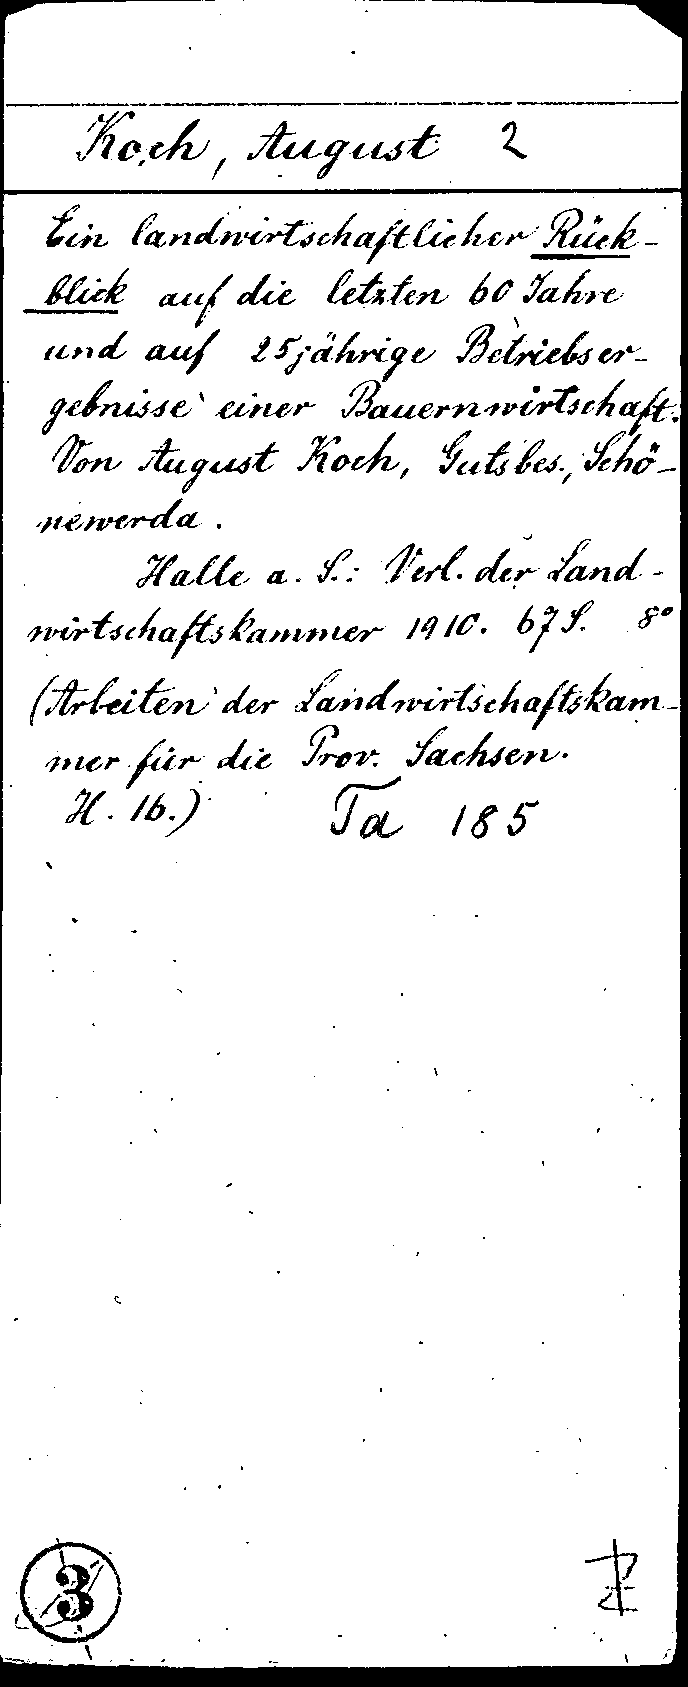 Koch, August 2
Ein landwirtschaftlicher Rück-
blick auf die letzten 60 Jahre
und auf 25jährige Betriebser-
gebnisse einer Bauernwirtschaft.
Von August Koch, Gutsbes., Schö-
newerda.
Halle a. S.: Verl. der Land-
wirtschaftskammer 1910. 67 S. 8°
(Arbeiten der Landwirtschaftskam-
mer für die Prov. Sachsen.
H. 16.) Ta 185
3